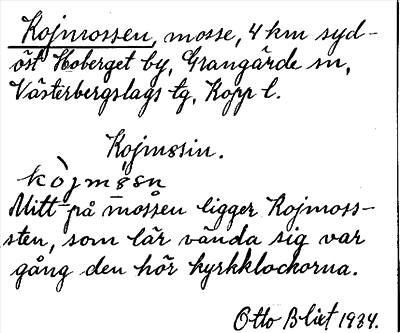 Kojmossen, mosse, 4 km syd-
öst Hoberget by, Grangärde sn,
Västerbergslags tg, Kopp l.
Kojmosin.
Mitt på mossen ligger Kojmoss-
sten, som lär vända sig var
gång den hör kyrkklockorna.
Otto Blixt 1934.